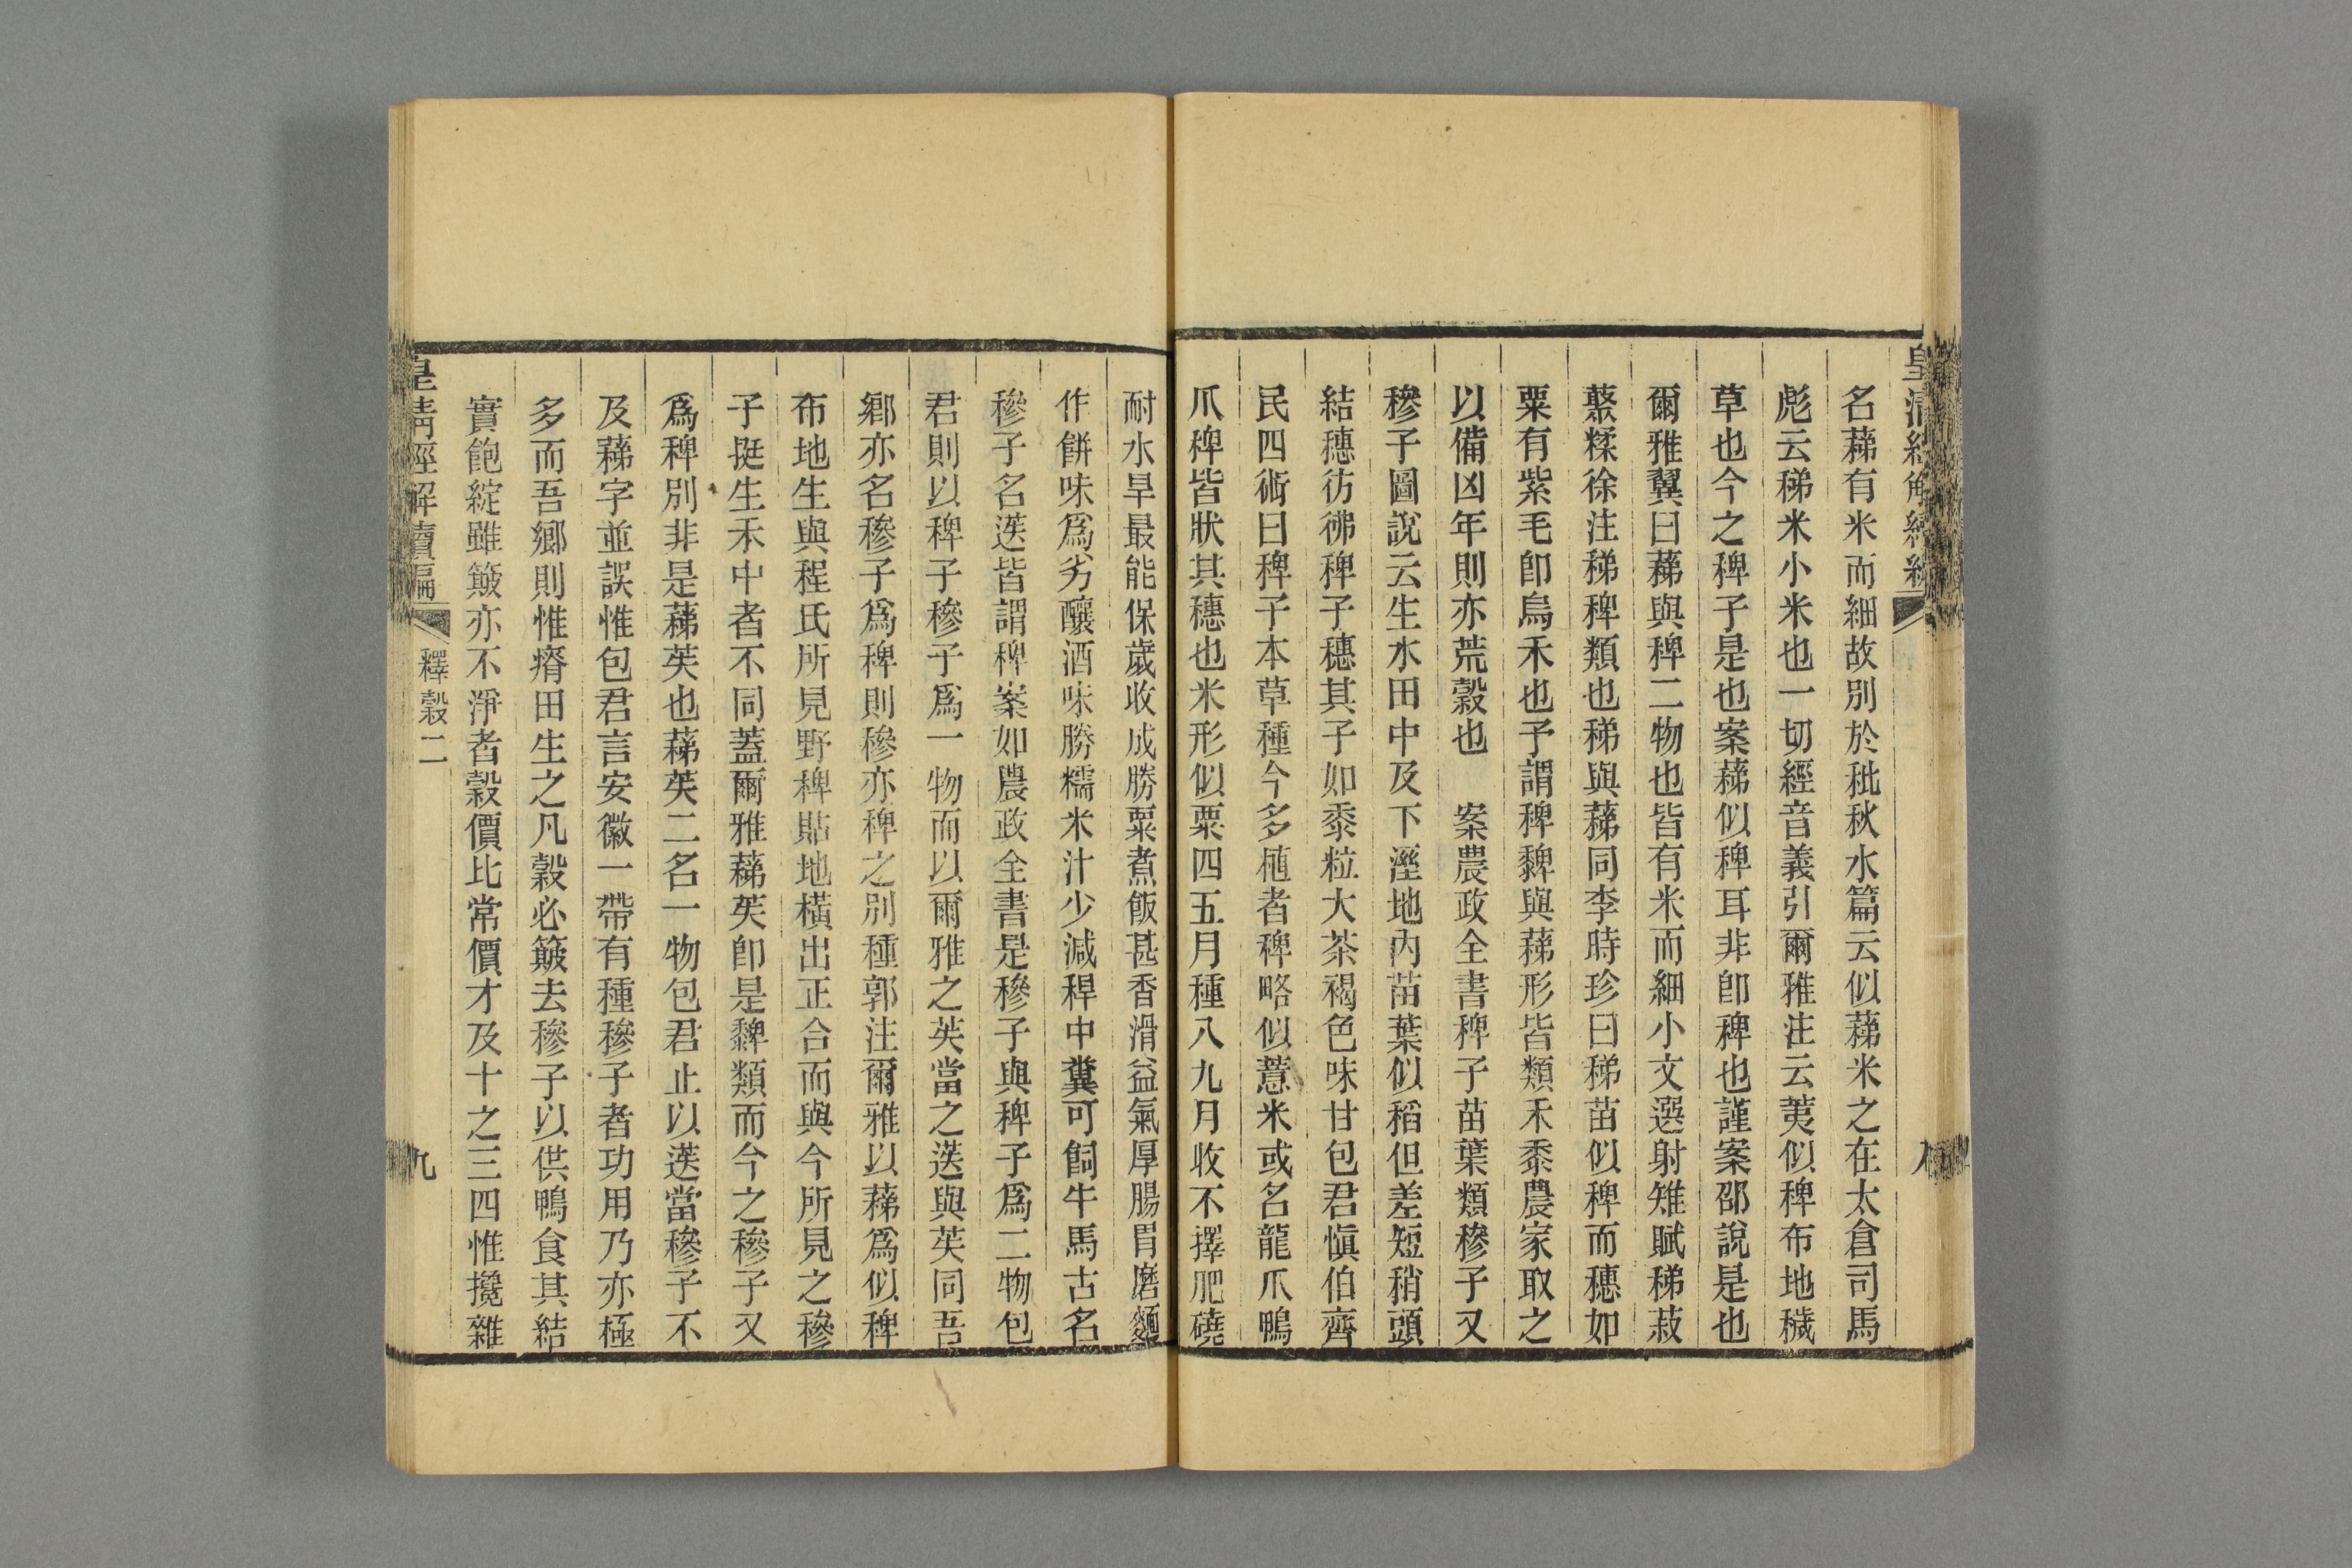 皇清經解續編
名蕛有米而細故別於秕秋水篇云似蕛米之在太倉司馬
彪云稊米小米也一切經音義引爾雅注云荑似稗布地穢
草也今之稗子是也案蕛似稗耳非卽稗也謹案邵說是也
爾雅翼曰蕛與稗二物也皆有米而細小文選射雉賦稊菽
藂糅徐注稊稗類也稊與蕛同李時珍曰稊苗似稗而穗如
粟有紫毛卽烏禾也予謂稗䅟與蕛形皆類禾黍農家取之
以備凶年則亦荒穀也　案農政全書稗子苗葉類穇子又
穇子圖說云生水田中及下溼地內苗葉似稻但差短稍頭
結穗彷彿稗子穗其子如黍粒大茶褐色味甘包君愼伯齊
民四術曰稗子本草種今多植者稗略似薏米或名龍爪鴨
爪稗皆狀其穗也米形似粟四五月種八九月收不擇肥磽
耐水旱最能保歲收成勝粟煮飯甚香滑益氣厚腸胃磨麵
作餅味爲劣釀酒味勝糯米汁少減稈中糞可飼牛馬古名
穇子名蒁皆謂稗案如農政全書是穇子與稗子爲二物包
君則以稗子穇子爲一物而以爾雅之英當之蒁與英同吾
鄉亦名穇子爲稗則穇亦稗之別種郭注爾雅以蕛爲似稗
布地生與程氏所見野稗貼地橫出正合而與今所見之穇
子挺生禾中者不同蓋爾雅蕛英卽是䅟類而今之穇子又
爲稗別非是蕛英也蕛英二名一物包君止以蒁當穇子不
及蕛字並誤惟包君言安徽一帶有種穇子者功用乃亦極
多而吾鄉則惟瘠田生之凡穀必簸去穇子以供鴨食其結
實飽綻雖簸亦不淨者穀價比常價才及十之三四惟攙雜
皇清經解續編　釋穀二　九